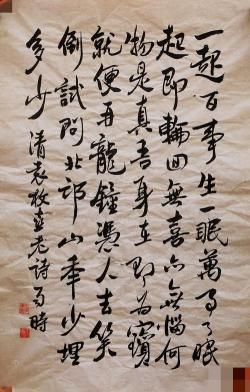 一起百事生一眠萬事了眠
起即輪回無喜亦無惱何
物是真吾身在即為寶
就便再龍鍾憑人去笑
倒試問北邙山年少埋
多少 清袁枚喜老詩 時